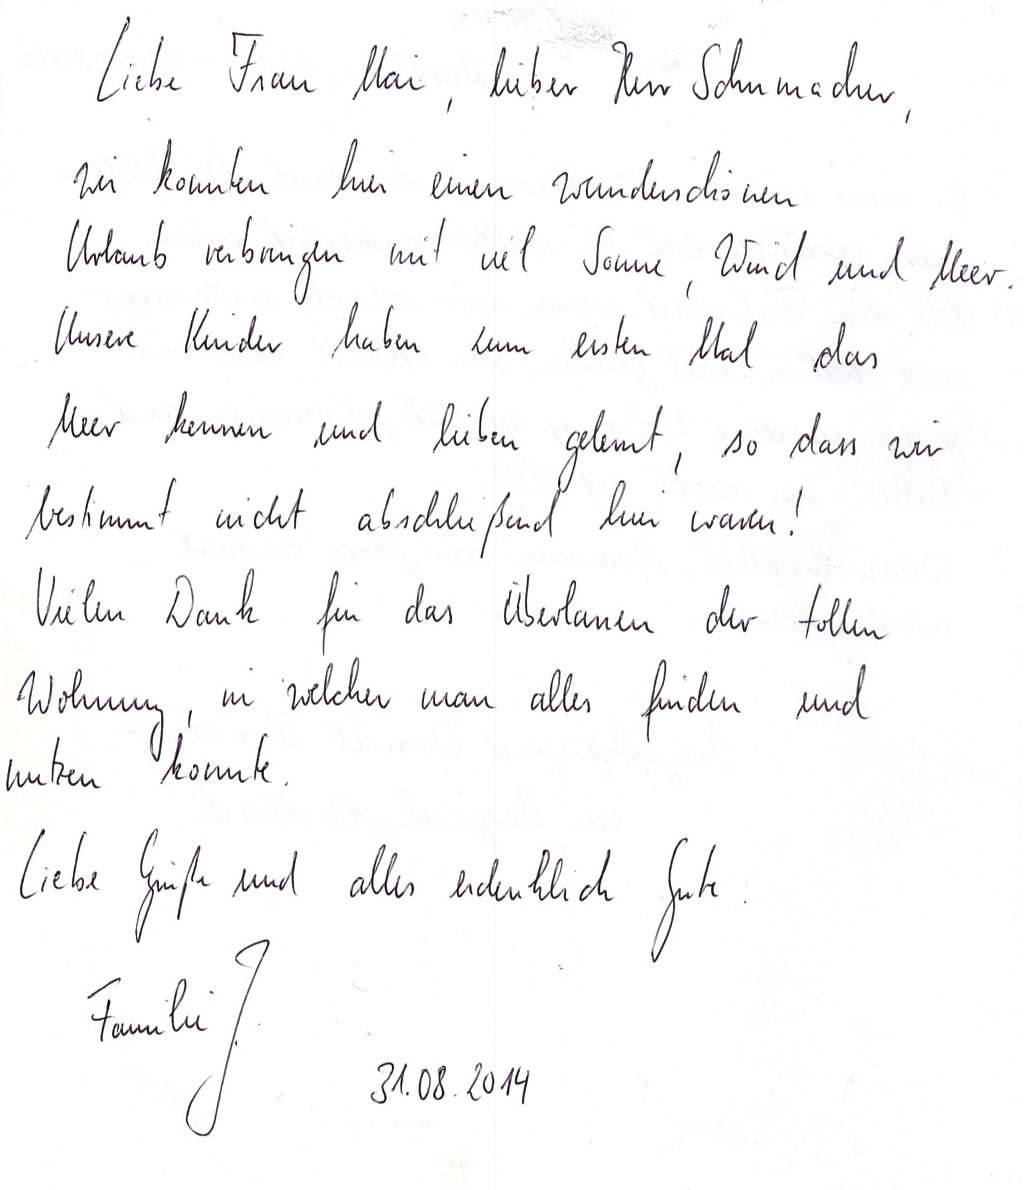 Liebe Frau Mai, lieber Herr Schumacher,
wir konnten hier einen wunderschönen
Urlaub verbringen mit viel Sonne, Wind und Meer.
Unsere Kinder haben zum ersten Mal das
Meer kennen und lieben gelernt, so dass wir
bestimmt nicht abschließend hier waren!
Vielen Dank für das Überlassen der tollen
Wohnung, in welcher man alles finden und
nutzen konnte.
Liebe Grüße und alles erdenklich Gute.
Familie J.
31.08.2014